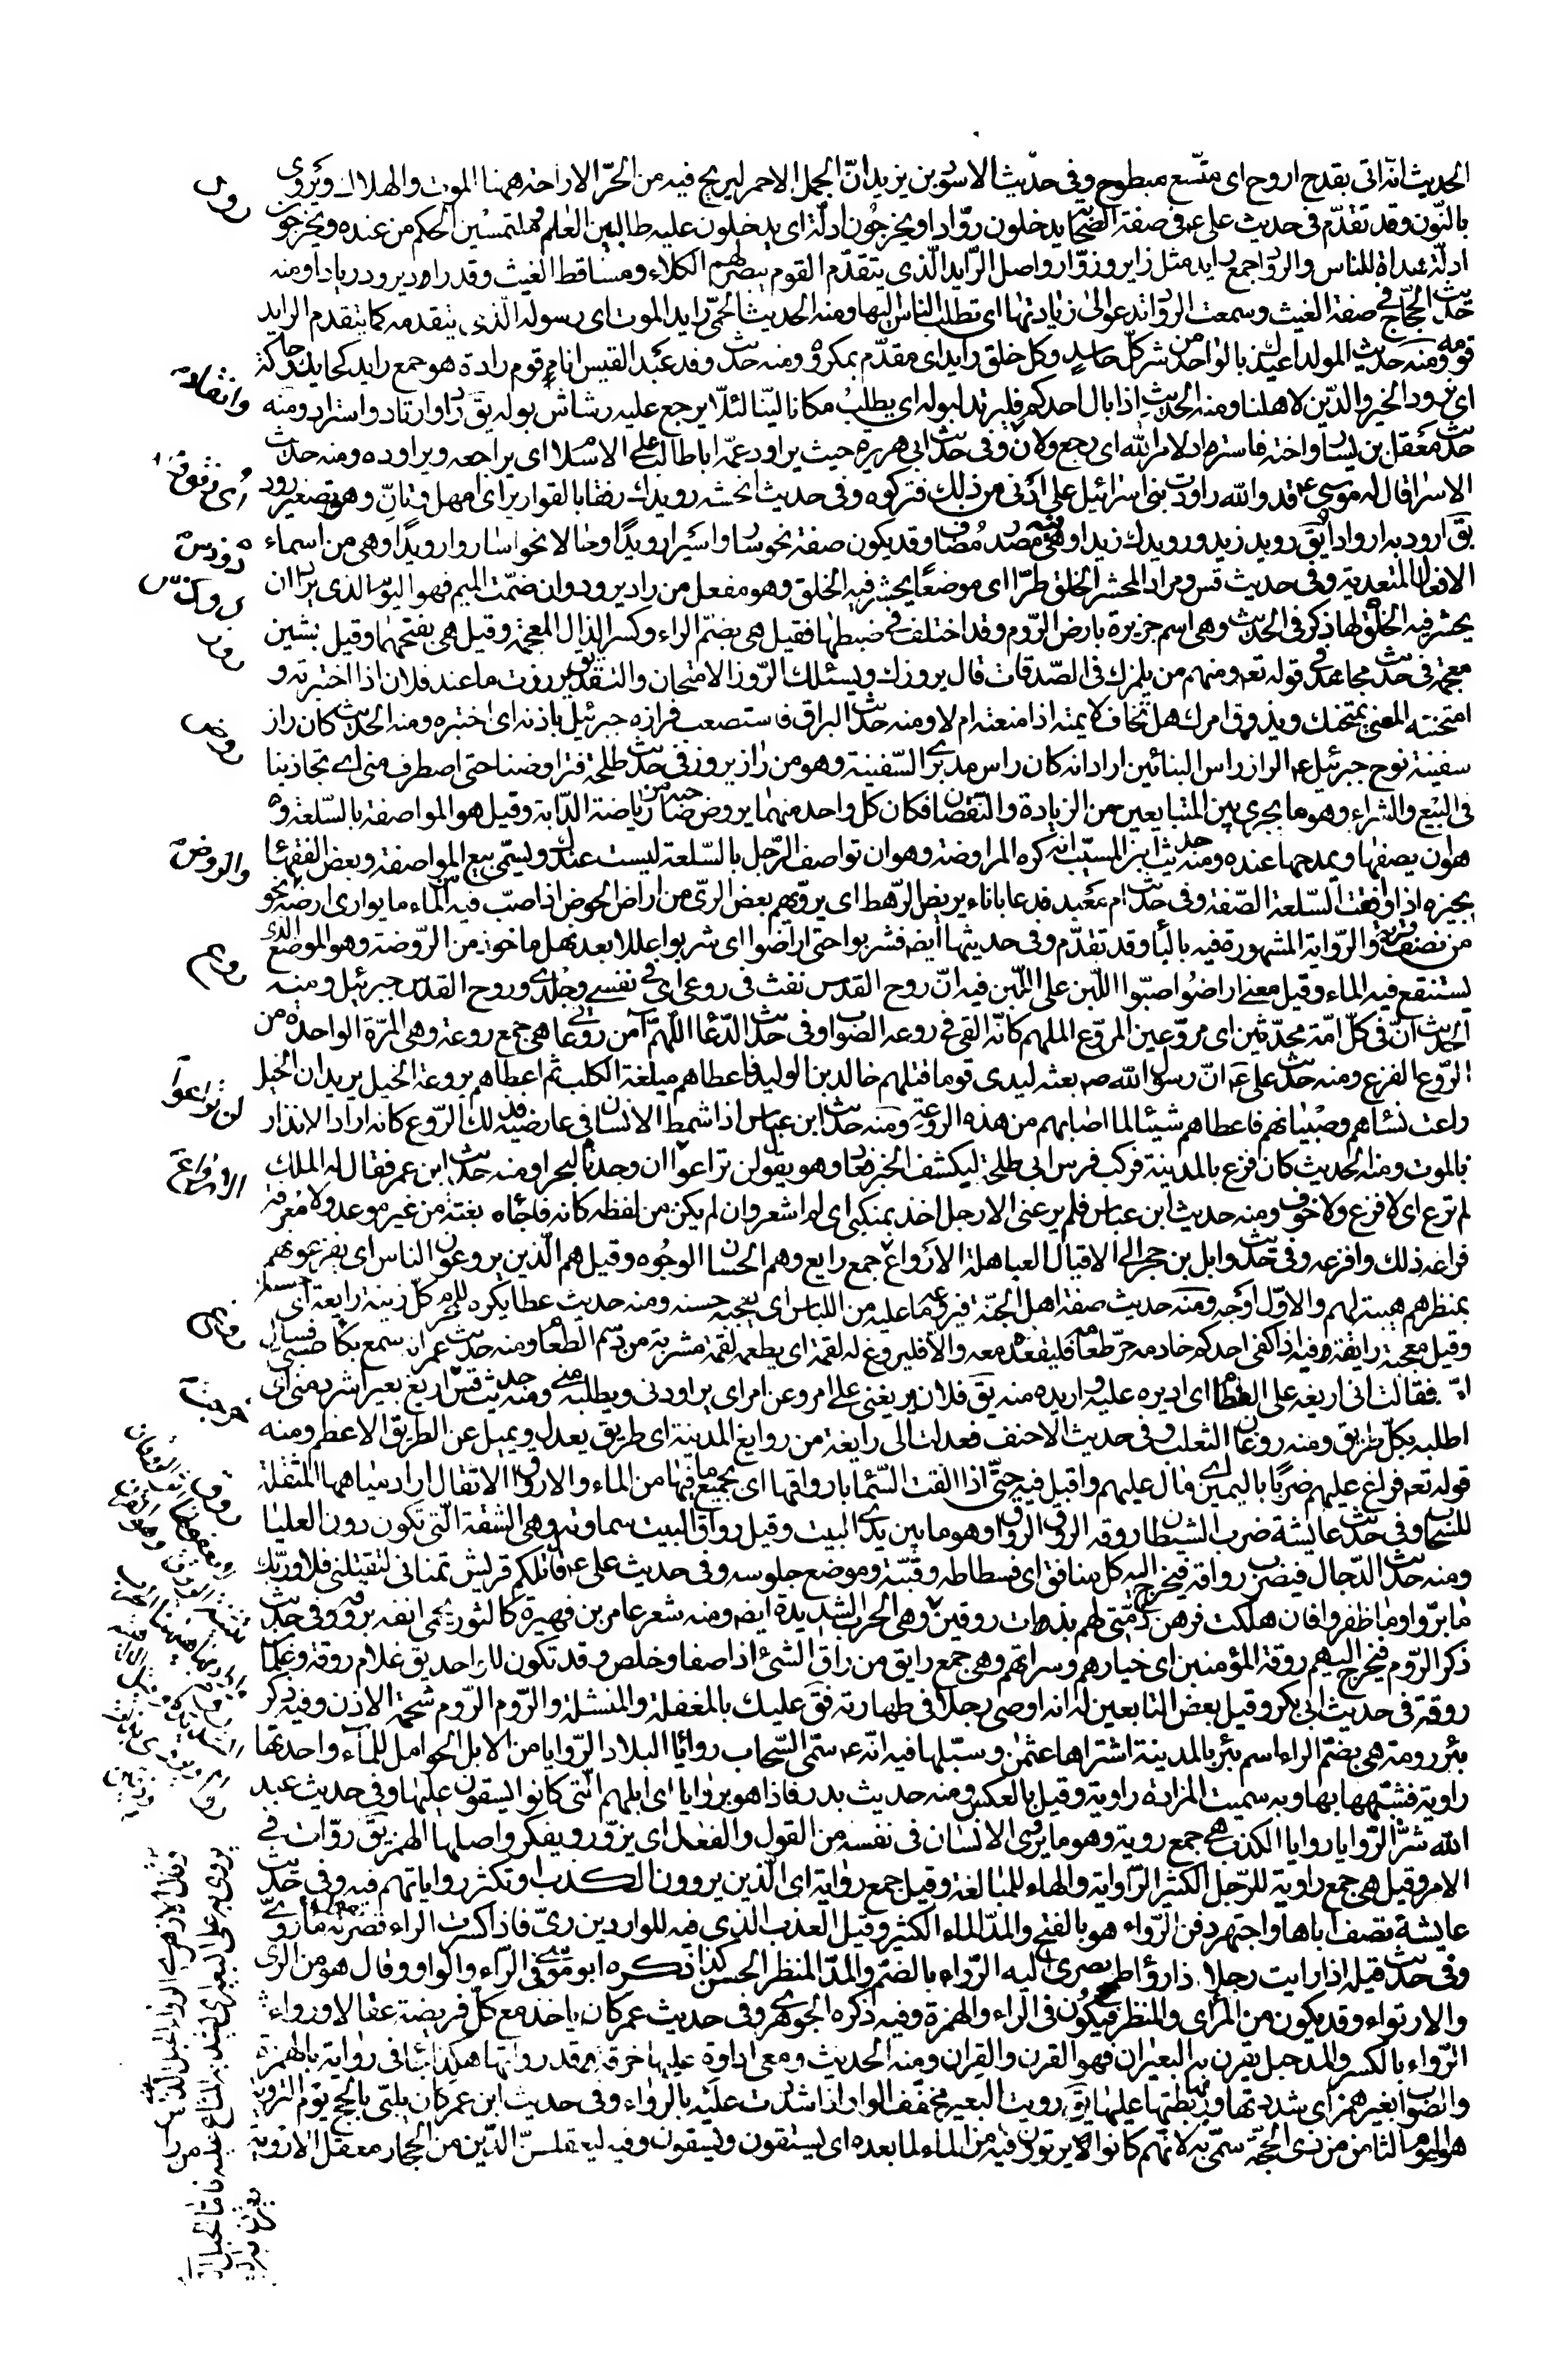 الحديث انّه اتى بقدح اروح اى متّسع مبطوح وفى حديث الاسود بن يزيد انّ الجمل الاحمر ليريح فيه من الحرّ الاراحة ههنا الموت والهلاك ويروى
بالنّون وقد تقدّم فى حديث على ع فى صفة الصّحابة يدخلون روّادا ويخرجون ادلّة اى يدخلون عليه طالبين العلم وملتمسين الحكم من عنده ويخرجون
ادلّة هداة للناس والروّاد جمع رايد مثل زاير وزوّار واصل الرّايد الّذى يتقدّم القوم يبصر لهم الكلاء ومساقط الغيث وقد راد يرود ريادا ومنه
حديث الحجّاج فى صفة الغيث وسمعت الروّاد تدعو الى زيادتها اى تطلب الناس اليها ومنه الحديث الحمّى رايد الموت اى رسوله الّذى يتقدمه كما يتقدم الرايد
قومه ومنه حديث المولد اعيذك بالواحد من شرّ كلّ حاسد وكل خلق رايد اى متقدّم بمكروه ومنه حديث وفد عبد القيس انا قوم رادة هو جمع رايد كحايك وحاكة
اى نرود الخير والدّين لاهلنا ومنه الحديث اذا بال احدكم فليرتد لبوله اى يطلب مكانا ليّنا لئلّا يرجع عليه رشاش بوله يق راد وارتاد واستراد ومنه
حديث معقل بن يسار واخته فاستراد لامر الله اى رجع ولان وفى حديث ابى هريرة حيث يراود عمّه ابا طالب على الاسلام اى يراجعه ويراوده ومنه حديث
الاسراء قال له موسى ع قد والله راودت بنى اسرائيل على ادنى من ذلك فتركوه وفى حديث انجشه رويدك رفقا بالقوارير اى امهل وتانّ وهو تصغير رود
يق ارود به اروادا ويق رويد زيد ورويدك زيدا وهى فيه مصدر مضاف وقد يكون صفة نحو ساروا سيرا رويدا وحالا نحو ساروا رويدا وهى من اسماء
الافعال المتعدية وفى حديث قس ومراد المحشر الخلق طرّا اى موضعا يحشر فيه الخلق وهو مفعل من راد يرود وان ضمّت الميم فهو اليوم الذى يراد ان
يحشر فيه الخلق لها ذكر فى الحديث وهى اسم جزيرة بارض الرّوم وقد اختلف فى ضبطها فقيل هى بضمّ الراء وكسر الذال المعجمة وقيل هى بفتحها وقيل بشين
معجمة فى حديث مجاهد فى قوله تعه ومنهم من يلمزك فى الصّدقات قال يروزك ويسئلك الرّوز الامتحان والتقدير يق رزت ما عند فلان اذا اختبرته و
امتحنته المعنى يمتحنك ويذوق امرك هل تخاف لائمته اذا منعته ام لا ومنه حديث البراق فاستصعب فرازه جبرئيل باذنه اى اختبره ومنه الحديث كان راز
سفينة نوح جبرئيل ع الراز راس البنائين اراد انه كان راس مدبرى السّفينة وهو من راز يروز فى حديث طلحة فتراوضنا حتى اصطرف منى اى تجاذبنا
فى البيع والشراء وهو ما يجرى بين المتبايعين من الزيادة والنّقصان فكان كل واحد منهما يروض صاحبه من رياضة الدّابة وقيل هو المواصفة بالسّلعة و
هو ان يصفها ويمدحها عنده ومنه حديث ابن المسيّب انه كره المراوضة وهو ان تواصف الرّجل بالسّلعة ليست عندك ويسمّى بيع المواصفة وبعض الفقهاء
يجيزه اذا وافقت السّلعة الصّفة وفى حديث ام معبد فدعا باناء يريض الرّهط اى يرويهم بعض الرىّ من اراض الحوض اذا صبّ فيه من الماء ما يوارى ارضه نحو
من نصف قربة والرّواية المشهورة فيه بالباء وقد تقدّم وفى حديثها ايضه فشربوا حتى اراضوا اى شربوا عللا بعد نهل ماخوذ من الرّوضة وهو الموضع الذى
يستنقع فيه الماء وقيل معنى اراضوا صبّوا اللّبن على اللّبن فيه انّ روح القدس نفث فى روعى اى فى نفسى وخلدى وروح القدس جبرئيل ومنه
الحديث انّ فى كلّ امّة محدّثين اى مروّعين المروّع الملهم كانّه القى فى روعه الصّواب وفى حديث الدّعاء اللّهمّ آمن روعاتى هى جمع روعة وهى المرّة الواحدة من
الرّوع الفزع ومنه حديث على ع انّ رسول الله صه بعثه ليدى قوما قتلهم خالد بن الوليد فاعطاهم ميلغة الكلب ثم اعطاهم بروعة الخيل يريد ان الخيل
راعت نساءهم وصبيانهم فاعطاهم شيئا لما اصابهم من هذه الروعة ومنه حديث ابن عباس اذا شمط الانسان فى عارضيه فذلك الرّوع كانه اراد الانذار
بالموت ومنه الحديث كان فزع بالمدينة فركب فرس ابى طلحة ليكشف الخبر فعاد وهو يقول لن تراعوا ان وجدناه لبحرا ومنه حديث ابن عمر فقال له الملك
لم ترع اى لا فزع ولا خوف ومنه حديث ابن عباس فلم يرعنى الا رجل اخذ بمنكبى اى لم اشعر وان لم يكن من لفظه كانه فاجاه بغتة من غير موعد ولا معرفة
فراعه ذلك وافزعه وفى حديث وايل بن حجر الى الاقيال العباهلة الارواع جمع رايع وهم الحسان الوجوه وقيل هم الّذين يروعون الناس اى يفزعونهم
بمنظرهم هيبة لهم والاوّل اوجه ومنه حديث صفة اهل الجنّة فيروعه ما عليه من اللباس اى يعجبه حسنه ومنه حديث عطا يكره للمحرم كلّ زينة رايعة اى حسنة
وقيل معجبة رايقة وفيه اذا كفى احدكم خادمه حرّ طعامه فليقعده معه والا فليروغ له لقمة اى يطعمه لقمة مشربة من دسم الطعام ومنه حديث عمر انه سمع بكاء صبى فسال
امّه فقالت انى اريغه على الفطام اى اديره عليه واريده منه يق فلان يريغنى على امر وعن امر اى يراودنى ويطلبه منى ومنه حديث قيس اريغ بعيرا شرد منى اى
اطلبه بكلّ طريق ومنه روغان الثعلب وفى حديث الاحنف فعدلت الى رايغة من روايغ المدينة اى طريق يعدل ويميل عن الطريق الاعظم ومنه
قوله تعه فراغ عليهم ضربا باليمين اى مال عليهم واقبل فيه حتّى اذا القت السّماء باروقها اى بجميع ما فيها من الماء والارواق الاثقال اراد مياهها المثقلة
للسّحاب وفى حديث عايشة ضرب الشيطان روقه الروق الرواق وهو ما بين يدى البيت وقيل رواق البيت سماوته وهى الشقة الّتى تكون دون العليا
ومنه حديث الدّجال فيضرب رواقه فيخرج اليه كل منافق اى فسطاطه وقبّته وموضع جلوسه وفى حديث على ع تلكم قريش تمنانى لتقتلنى فلا وربّك
ما برّوا وما ظفروا فان هلكت فرهن ذمّتى لهم بذات روقين وهى الحرب الشديدة ايضه ومنه شعر عامر بن فهيرة كالثور يحمى انفه بروقه وفى حديث
ذكر الرّوم فيخرج اليهم روقة المؤمنين اى خيارهم وسراتهم وهى جمع رايق من راق الشئ اذا صفا وخلص وقد تكون للواحد يق غلام روقة وغلمان
روقة فى حديث ابى بكر وقيل بعض التابعين انه اوصى رجلا فى طهارته فق عليك بالمغفلة والمنشلة والرّوم الرّوم شحمة الاذن وفيه ذكر
بئر رومة هى بضمّ الراء اسم بئر بالمدينة اشتراها عثمن وسبّلها فيه انّه ع سمّى السّحاب روايا البلاد الرّوايا من الابل الحوامل للماء واحدتها
راوية فشبّهها بها وبه سميت المزادة راوية وقيل بالعكس ومنه حديث بدر فاذا هو بروايا اى ابلهم الّتى كانوا يستقون عليها وفى حديث عبد
الله شرّ الرّوايا روايا الكذب هى جمع روية وهو ما يروّى الانسان فى نفسه من القول والفعل اى يزوّر ويفكر واصلها الهمز يق روّات فى
الامر وقيل هى جمع راوية للرّجل الكثير الرّواية والهاء للمبالغة وقيل جمع رواية اى الّذين يروون الكذب وتكثر رواياتهم فيه وفى حديث
عايشة تصف اباها واجتهر دفن الرّواء هو بالفتح والمدّ الماء الكثير وقيل العذب الذى فيه للواردين رىّ فاذا كسرت الراء قصرته
وفى حديث قيلة اذا رايت رجلا ذا رؤاء طمح بصرى اليه الرّواء بالضمّ والمدّ المنظر الحسن كذا ذكره ابو موسى فى الرّاء والواو وقال هو من الرىّ
والارتواء وقد يكون من المراى والمنظر فيكون فى الراء والهمزة وفيه ذكره الجوهرى وفى حديث عمر كان ياخذ مع كلّ فريضة عقالا ورواء
الرّواء بالكسر والمدّ حبل يقرن به البعيران فهو القرن والقران ومنه الحديث ومعى اداوة عليها خرقة قد رواتها هكذا جاء فى رواية بالهمزة
والصّواب بغير همز اى شددتها وربطتها عليها يق رويت البعير مخفف الواو اذا شددت عليه بالرّواء وفى حديث ابن عمر كان يلبّى بالحج يوم التروية
هو اليوم الثامن من ذى الحجّة سمّى به لانّهم كانوا يرتوون فيه من الماء لما بعده اى يستقون ويسقون وفيه ليعقلنّ الدّين من الحجاز معقل الاروية
رود
روذس
روز
روض
والروض
روع
لن تراعوا
الارواع
روغ
روق
روم